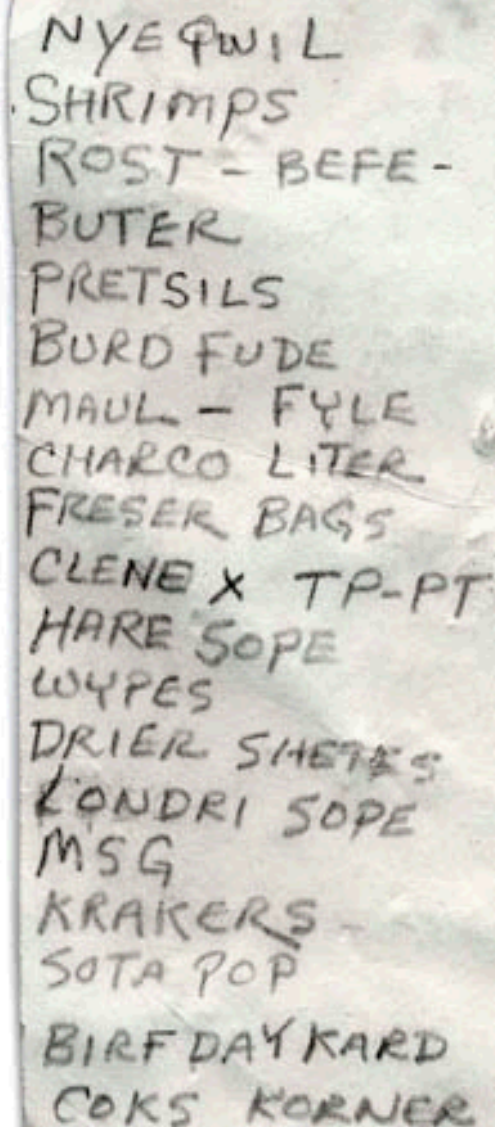 NYEQWIL
SHRIMPS
ROST - BEFE -
BUTER
PRETSILS
BURD FUDE
MAUL - FYLE
CHARCO LITER
FRESER BAGS
CLENE X TP-PT
HARE SOPE
WYPES
DRIER SHETES
LONDRI SOPE
MSG
KRAKERS
SOTA POP
BIRFDAY KARD
COKS KORNER